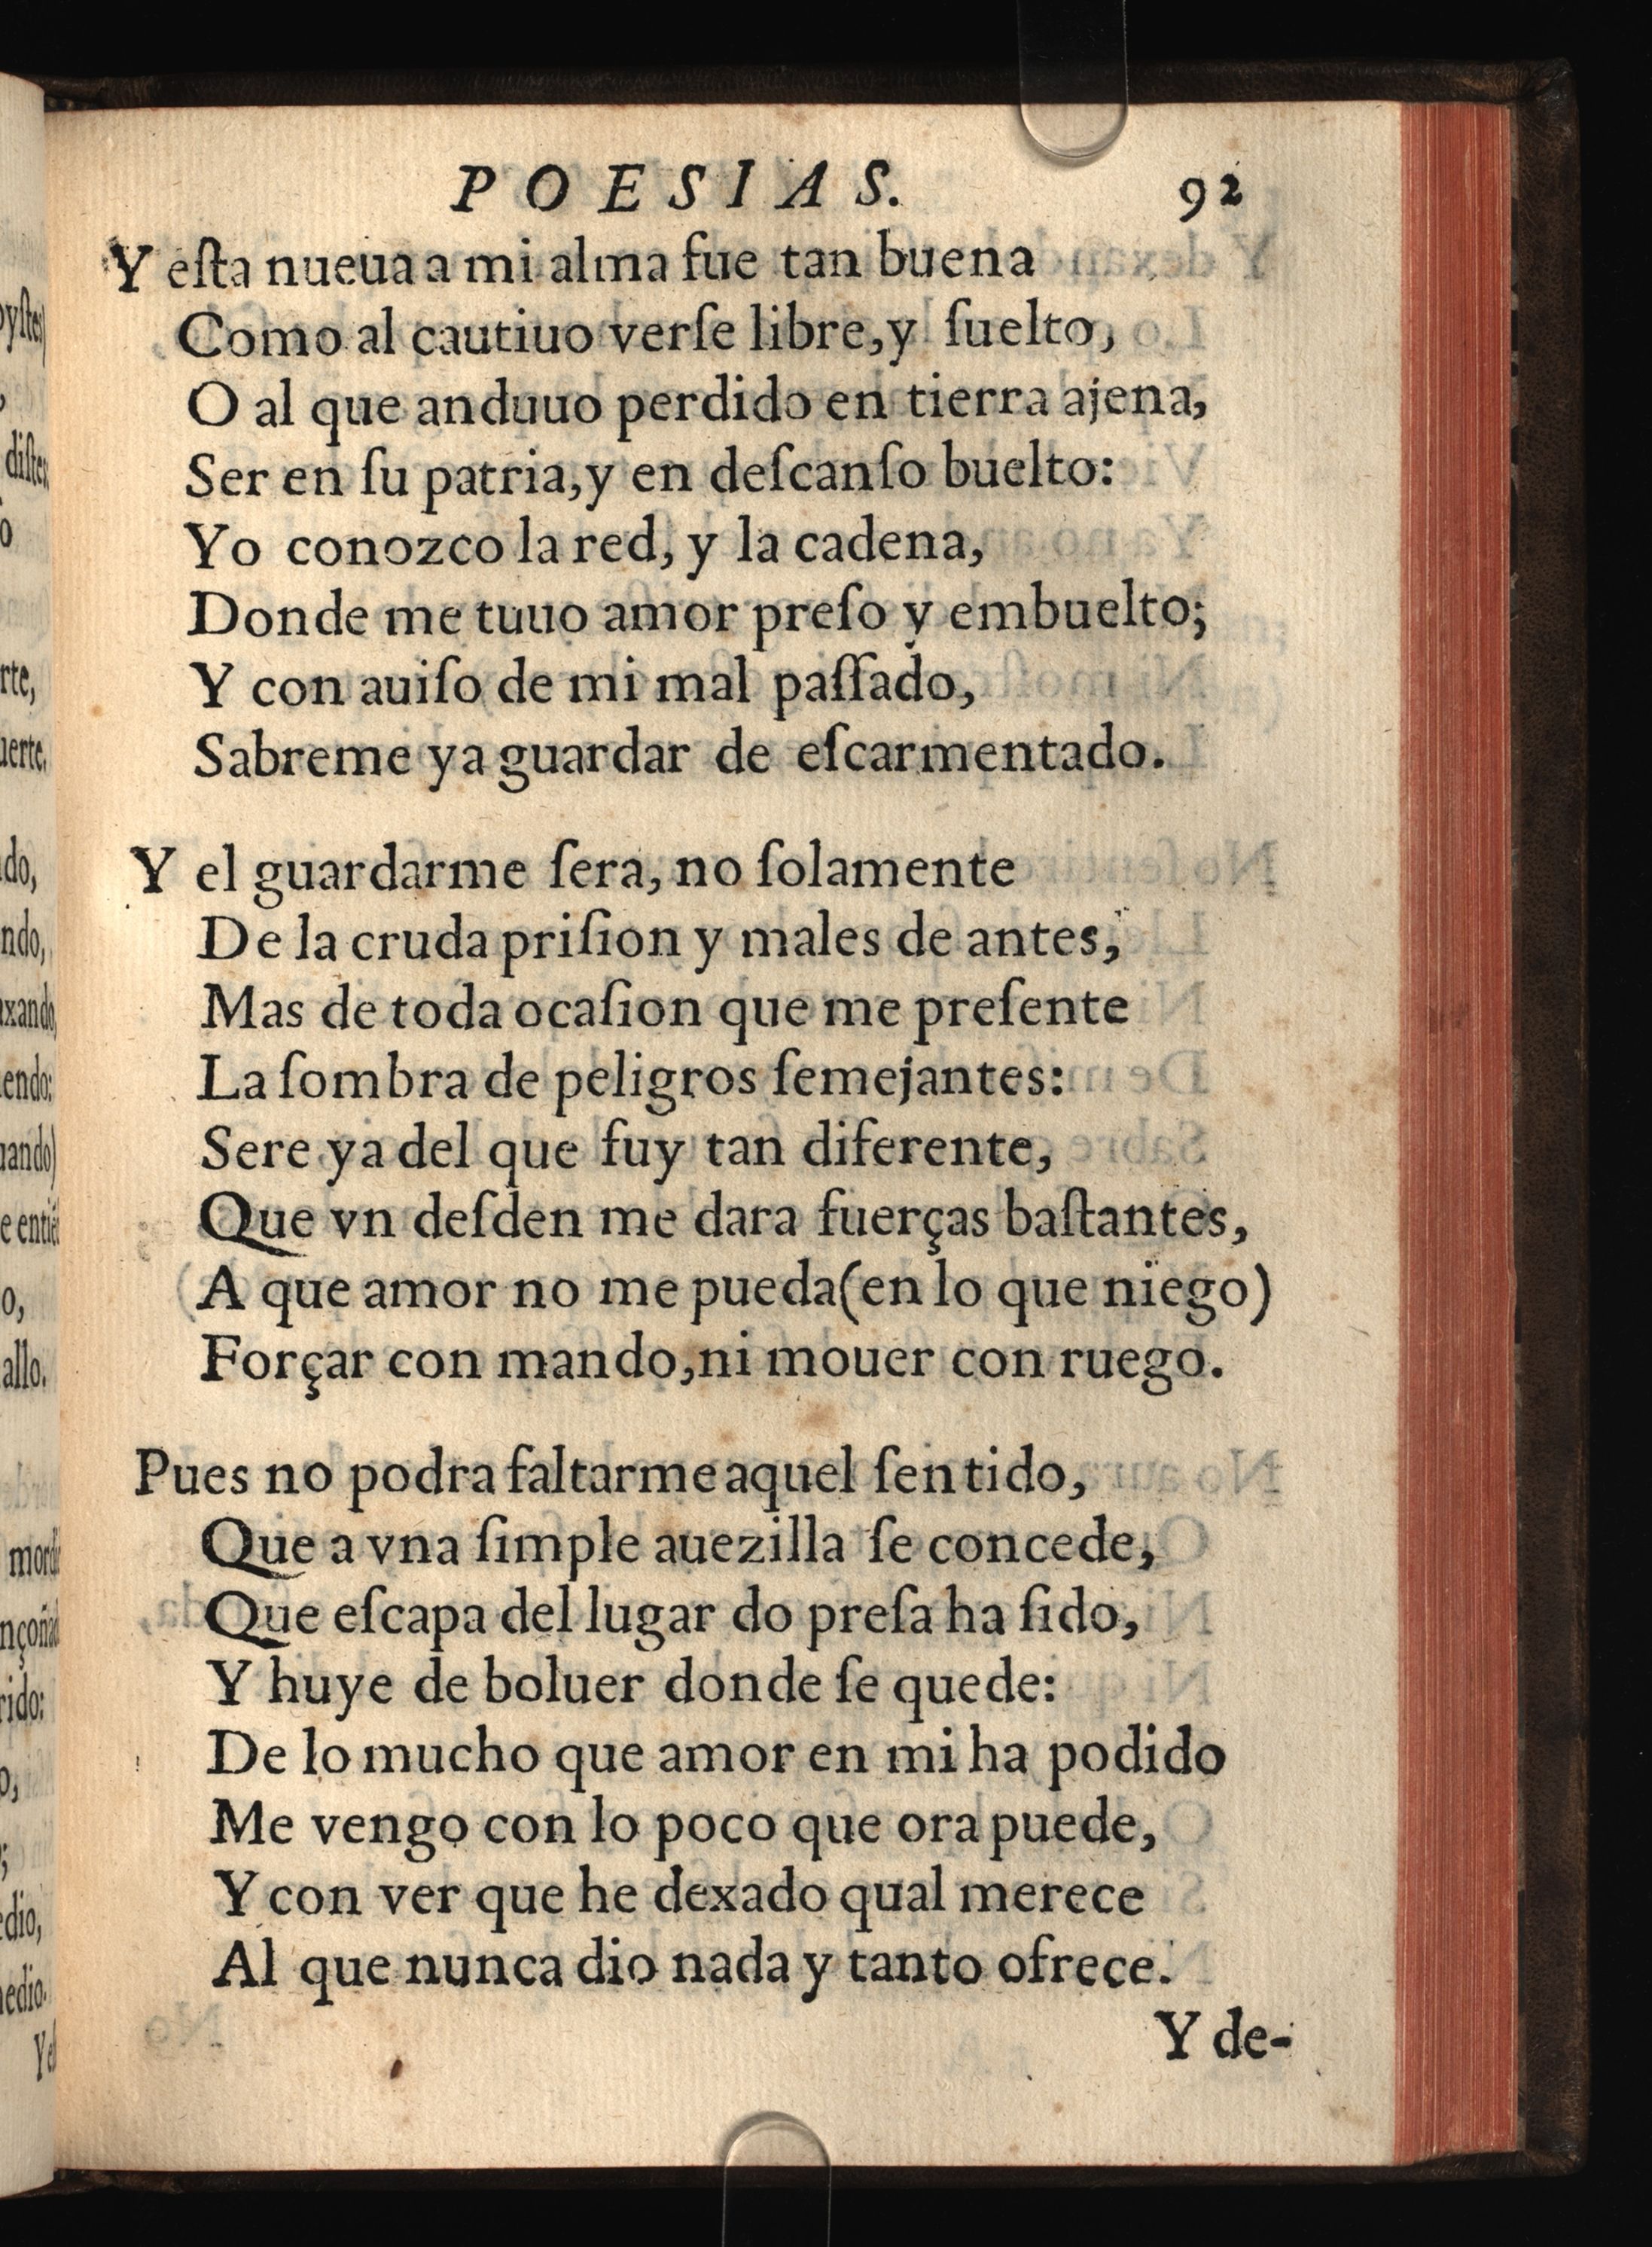 POESIAS. 92
Y eſta nueua a mi alma fue tan buena
Como al cautiuo verſe libre,y ſuelto,
O al que anduuo perdido en tierra ajena,
Ser en ſu patria,y en deſcanſo buelto:
Yo conozco la red, y la cadena,
Donde me tuuo amor preſo y embuelto;
Y con auiſo de mi mal paſſado,
Sabreme ya guardar de eſcarmentado.
Y el guardarme ſera, no ſolamente
De la cruda priſion y males de antes,
Mas de toda ocaſion que me preſente
La ſombra de peligros ſemejantes:
Sere ya del que fuy tan diferente,
Que vn deſden me dara fuerças baſtantes,
A que amor no me pueda(en lo que niego)
Forçar con mando,ni mouer con ruego.
Pues no podra faltarme aquel ſentido,
Que a vna ſimple auezilla ſe concede,
Que eſcapa del lugar do preſa ha ſido,
Y huye de boluer donde ſe quede:
De lo mucho que amor en mi ha podido
Me vengo con lo poco que ora puede,
Y con ver que he dexado qual merece
Al que nunca dio nada y tanto ofrece.
Y de-